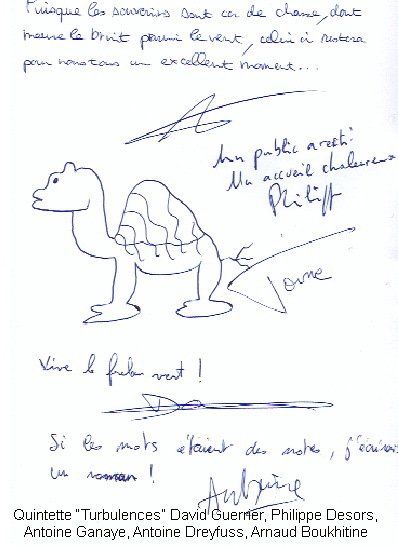 Puisque les souvenirs sont cor de chasse, dont
meurt le bruit parmi le vent, celui ci restera
pour nous tous un excellent moment...
Un public averti!
Un accueil chaleureux
Vive le frelon vert !
Si les mots étaient des notes, j'écrirais
un roman !
Antoine
Quintette "Turbulences" David Guerrier, Philippe Desors,
Antoine Ganaye, Antoine Dreyfuss, Arnaud Boukhitine